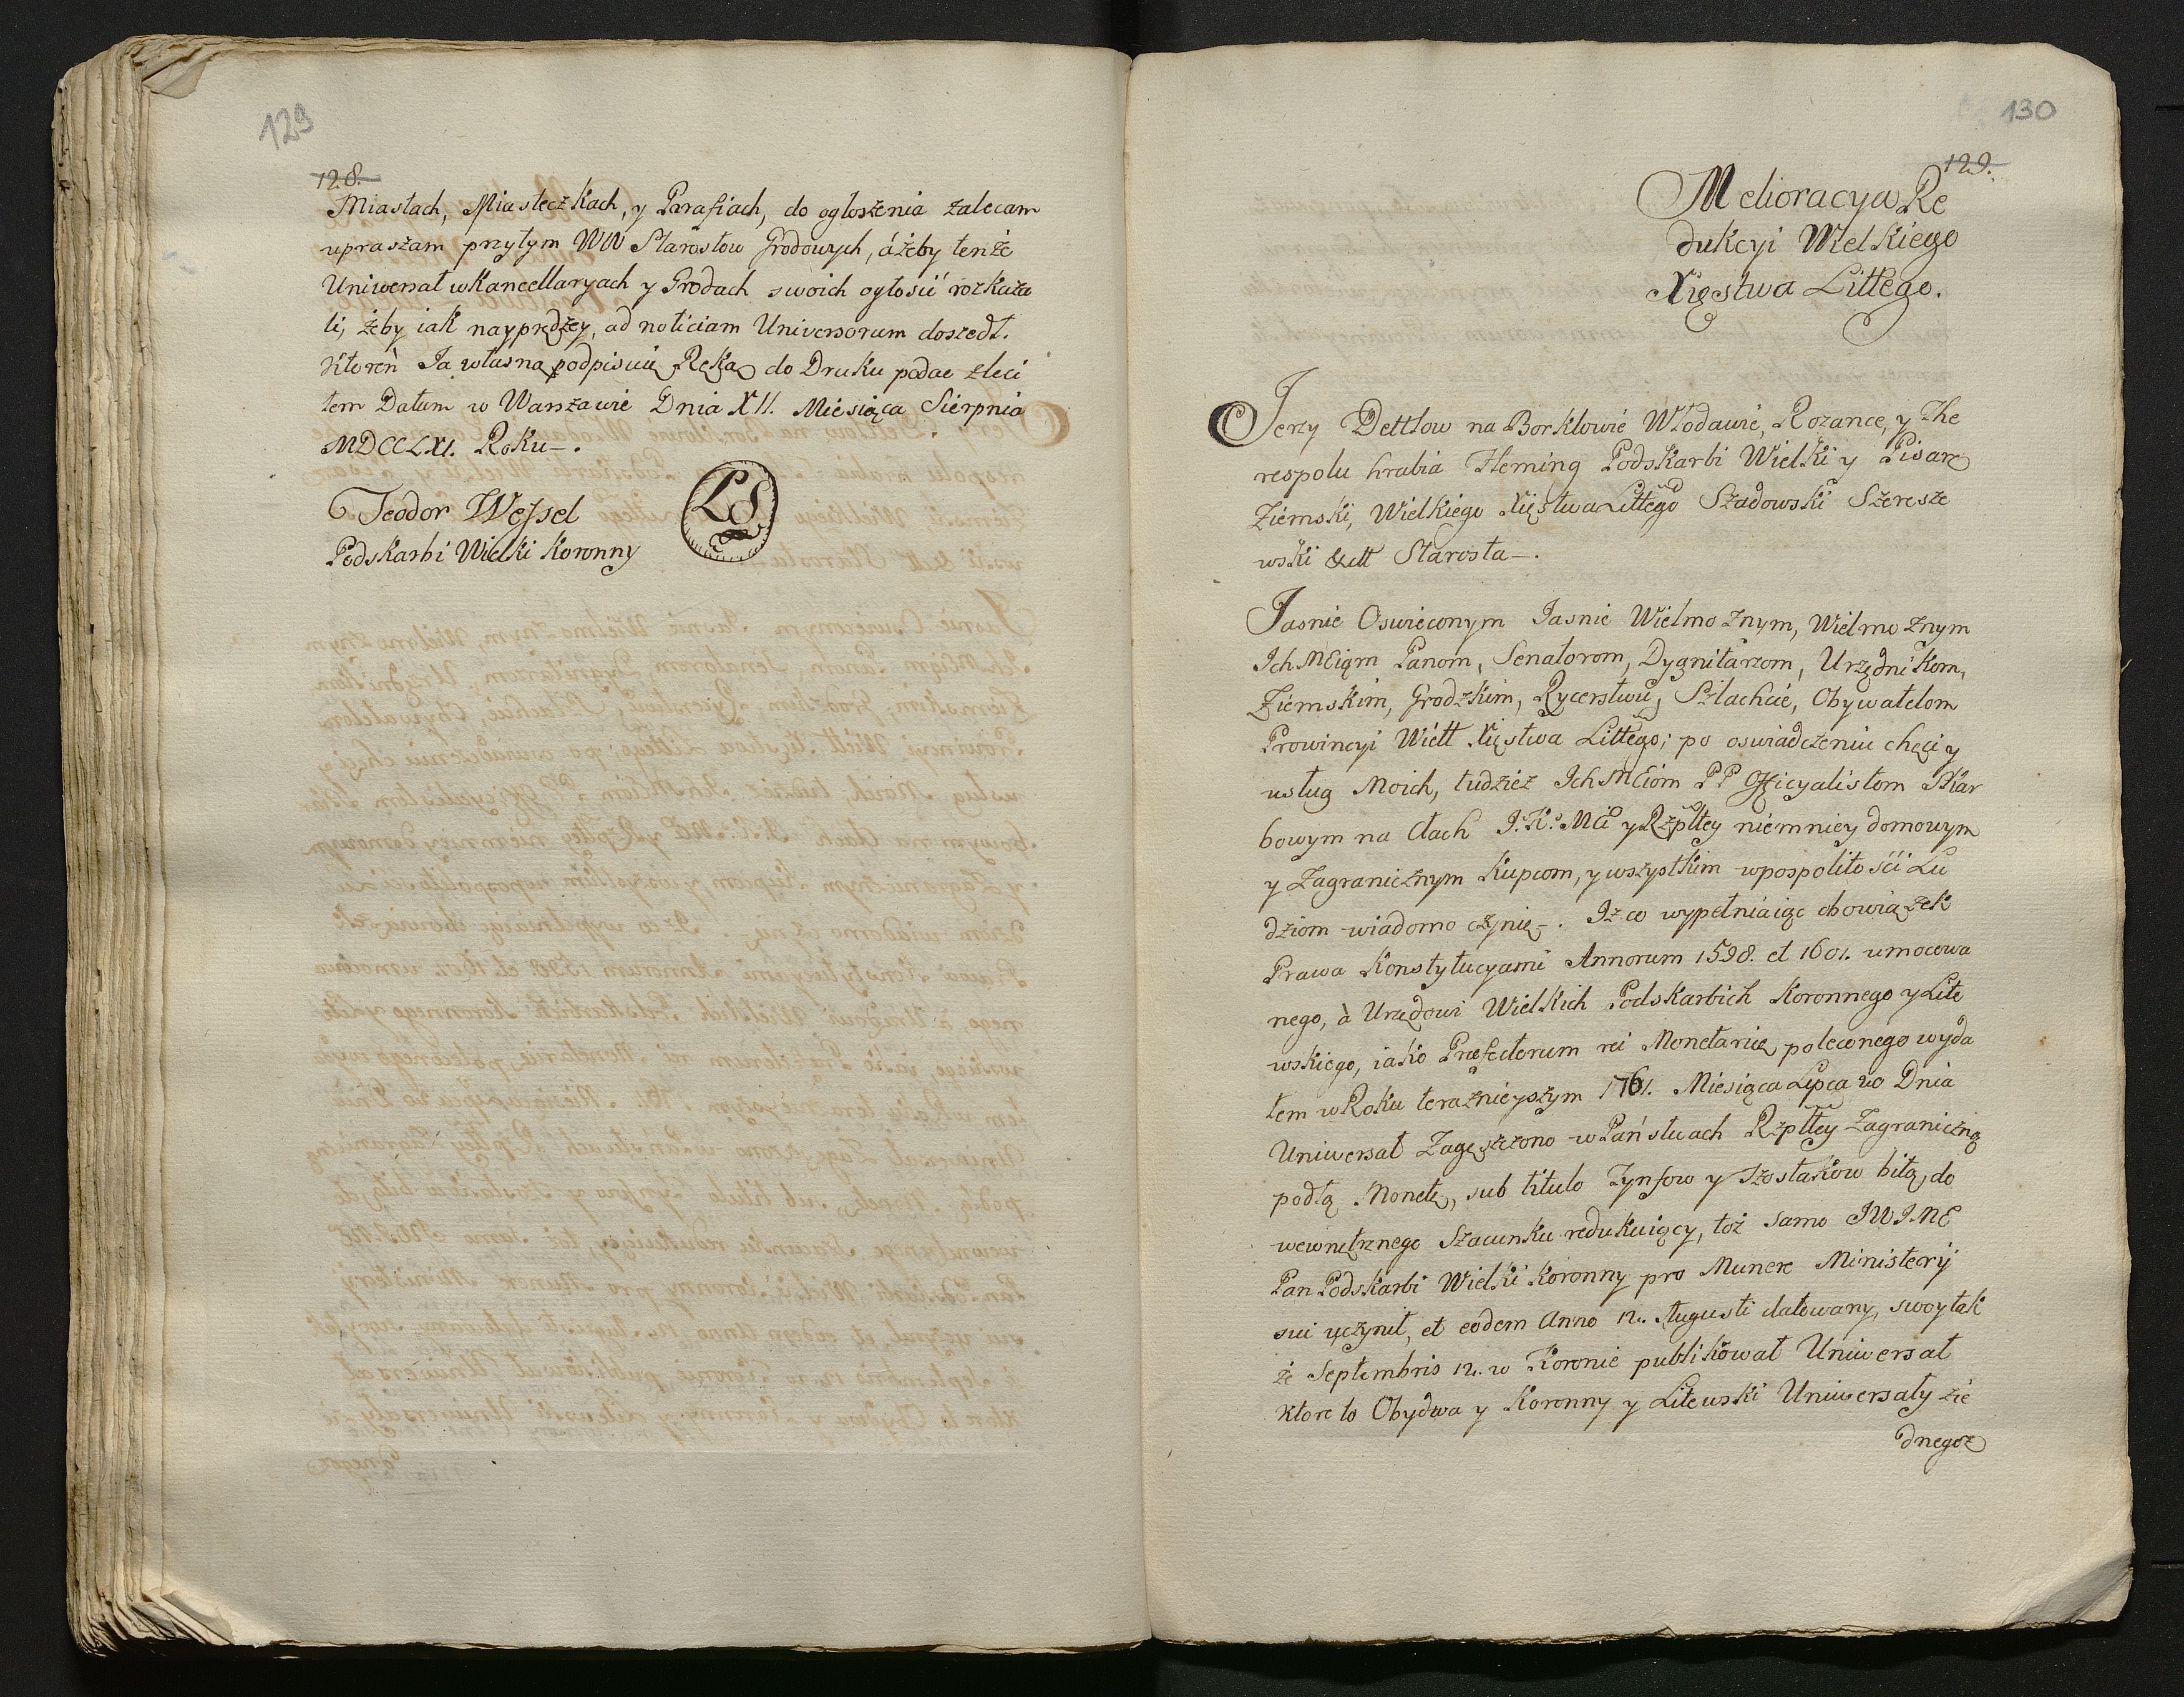 129
128.
Miastach, Miasteczkach, y Parafiach, do ogłoszenia zalecam
upraszam przytym WW Starostow Grodowych, ážeby tenże
Uniwersał w Kancellaryach y Grodach swoich ogłosić rozkaza
li, żeby iak nayprędzey, ad noticiam Universorum doszedł.
Ktoren Ja własną podpisuię Ręką do Druku podac zleci
łem Datum w Warszawie Dnia XII. Miesiąca Sierpnia
MDCCLXI. Roku.
Teodor Wessel
LS
Podskarbi Wielki Koronny
130
129.
Melioracya Re
dukcyi Wielkiego
Xięstwa Littego.
Jerzy Dettlow na Borklowie Włodawie, Rozance, y The
respolu hrabia Fleming Podskarbi Wielki y Pisarz
Ziemski, Wielkiego Xięstwa Littego Szadowski Szeresze
wski &ctt Starosta.
Jasnie Oswieconym Jasnie Wielmożnym, Wielmożnym
Ich MCiom Panom, Senatorom, Dygnitarzom, Urzędnikom,
Ziemskim, Grodzkim, Rycerstwu, Szlachcie, Obywatelom
Prowincyi Wiell Xięstwa Littego; po oswiadczeniu chęci y
usług Moich, tudziez Ich MCiom PP Officyalistom Skar
bowym na Cłach J. K. MCi y Rzpltey niemniey domowym
y Zagranicznym Kupcom, y wszystkim wpospolitości Lu
dziom wiadomo czynię. Iż co wypełniaiąc obowiązek
Prawa Konstytucyami Annorum 1598. et 1601. umocowa
nego, à Urzędowi Wielkich Podskarbich Koronnego y Lite
wskiego, iako Præfectorum rei Monetariæ poleconego wyda
łem w Roku teraznieyszym 1761. Miesiąca Lipca 20 Dnia
Uniwersał Zagęszczono w Państwach Rzpltey Zagraniczną
podłą Monetę, sub titulo Tynfow y Szostakow bitą, do
wewnętrznego Szacunku redukuiący, toż samo JWJ. MC
Pan Podskarbi Wielki Koronny pro Munere Ministerij
sui uczynił, et eodem Anno 12. Augusti datowany, swoy tak
że Septembris 12. w Koronie publikował Uniwersał
ktore to Obydwa y Koronny y Litewski Uniwersały zie
dnegoż